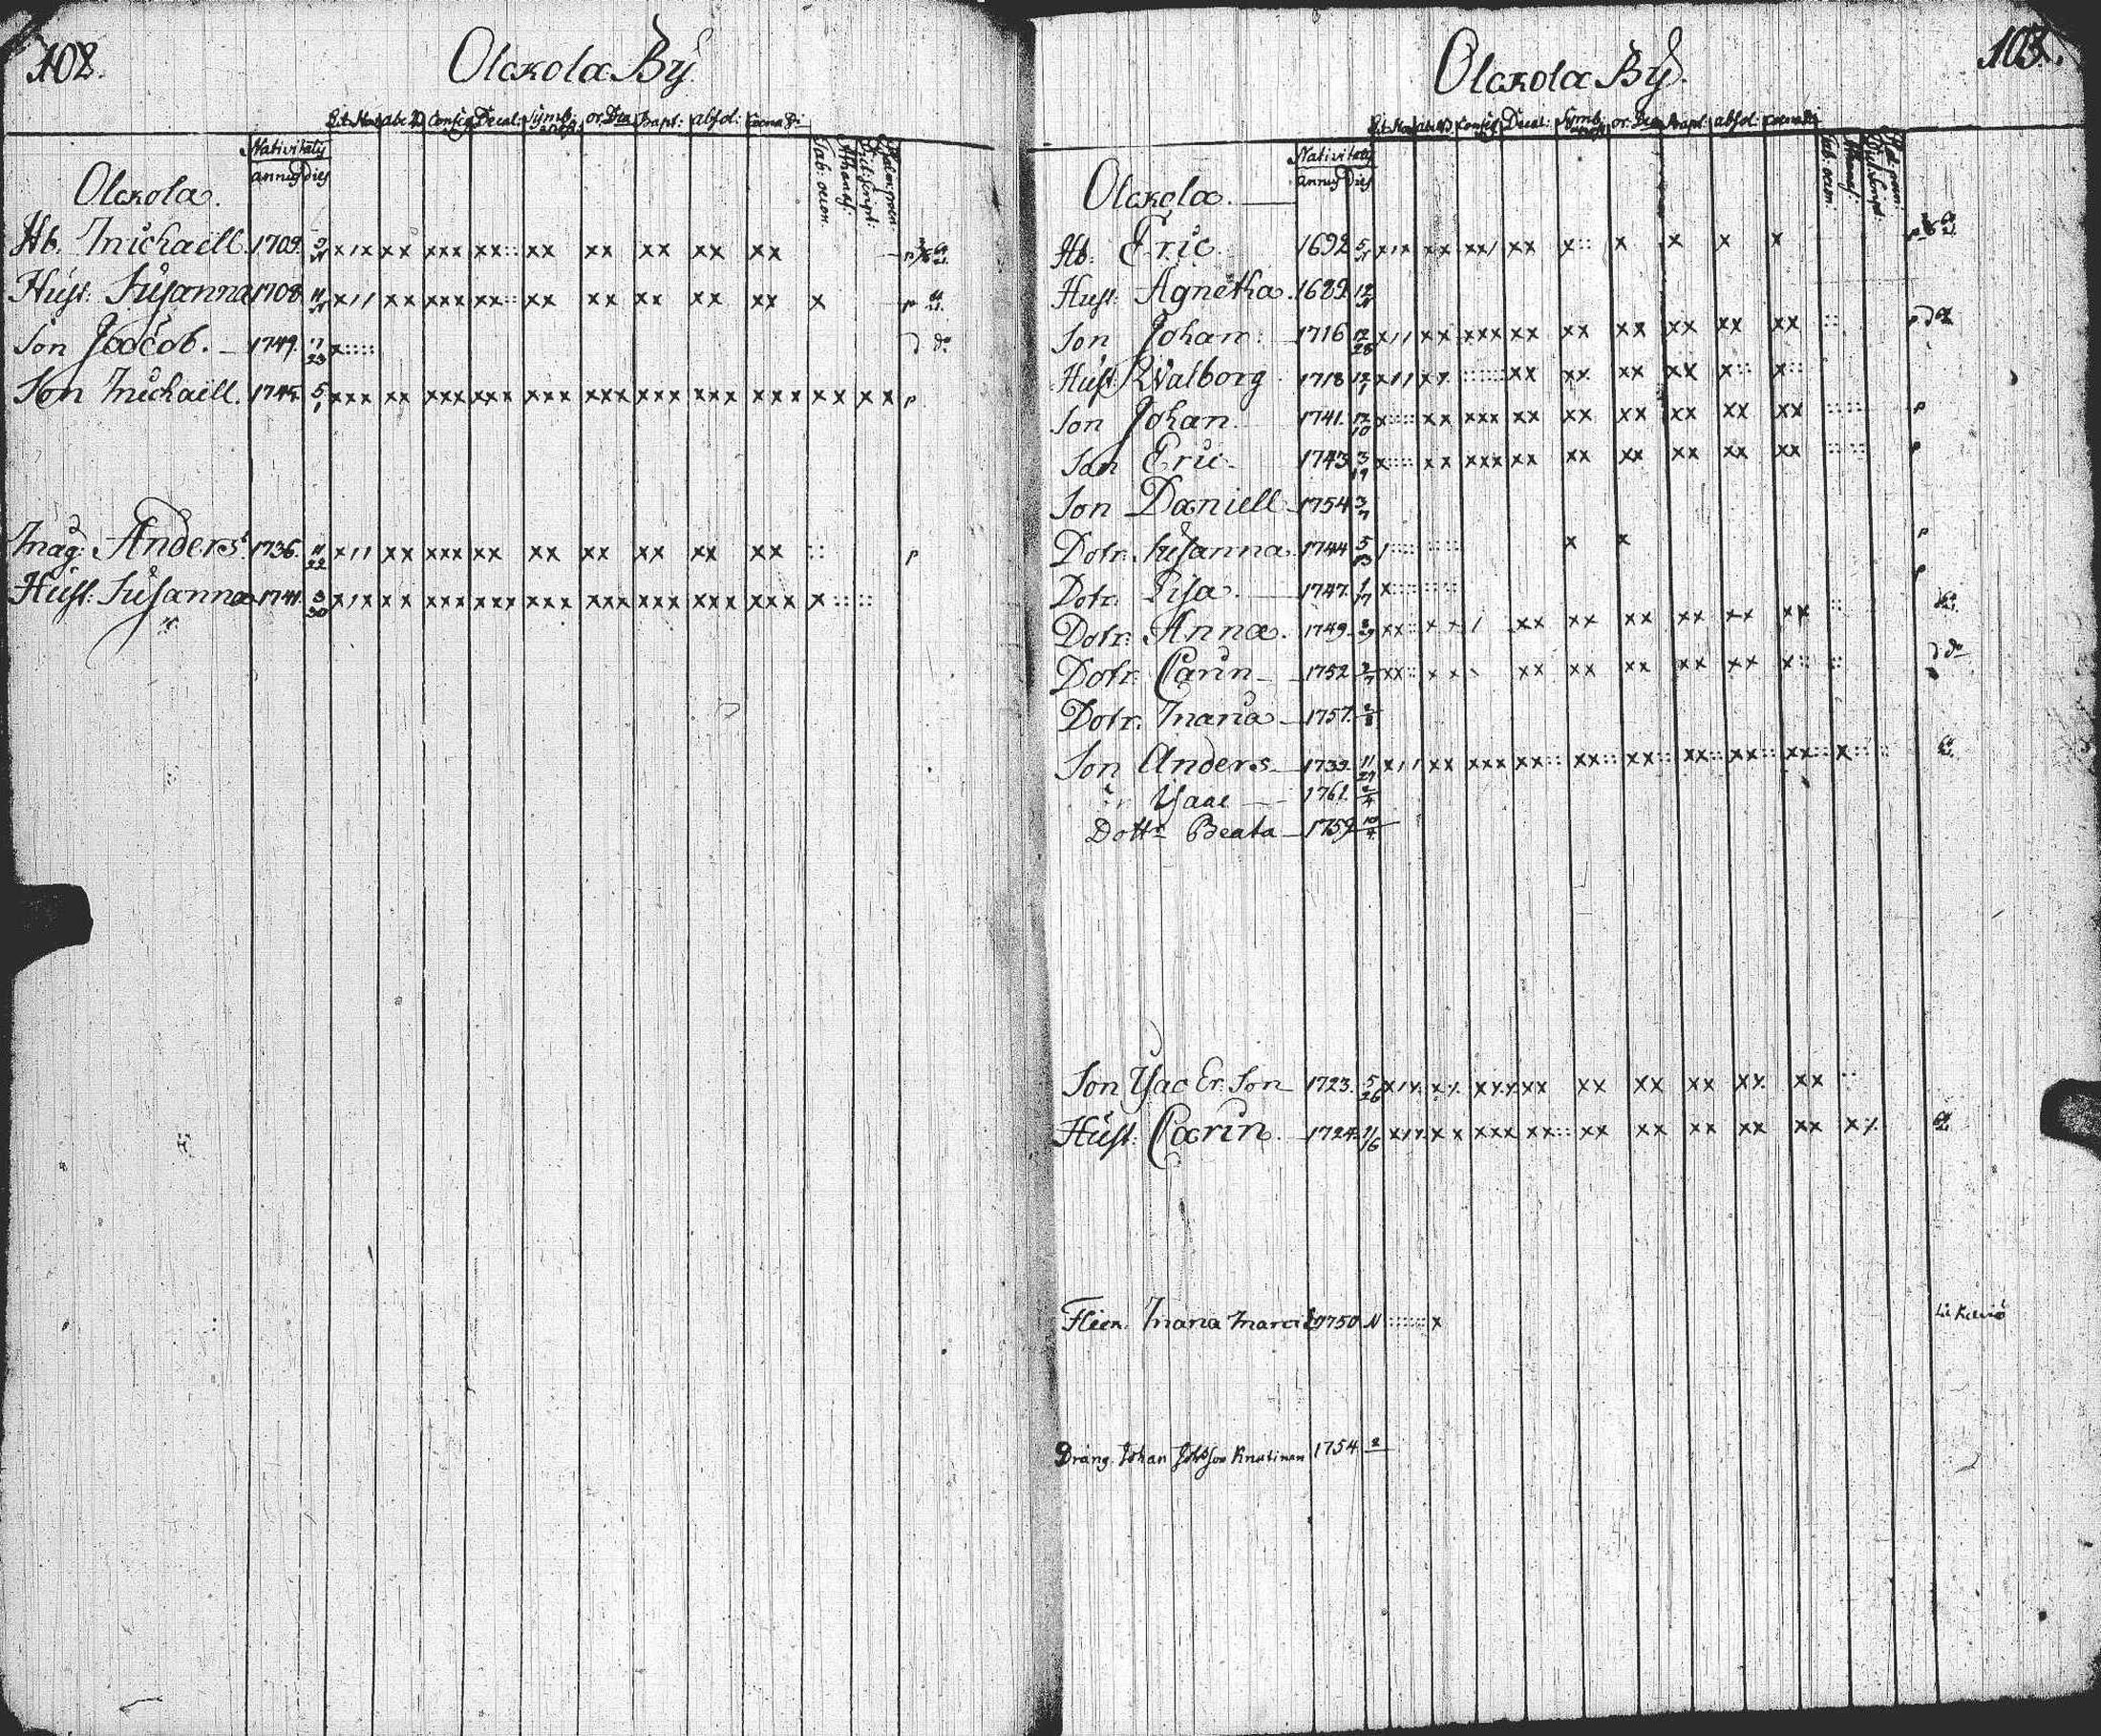 102.
Olckola By
Lit. Hos abc D Config Decal: Symb. or. Dca Bapt: absol: Coena Di
Nativitatis
annus dies
Tab: oecon.
Athanas:
Dict. script:
Olckola.
Hb. Michaell. 1709. x i x xx xxx xx:: xx xx xx xx xx
Hust: Susanna 1708 11 x i i xx xxx xx:: xx xx xx xx xx x p
Son Jacob. 1749. 7/23 x::::
Son Michaell. 1745. 5/1 xxx xx xxx xxx xxx xxx xxx xxx xxx xx xx p
Mag: Anders 1736. 11/22 x i i xx xxx xx xx xx xx xx xx :: p
Hust: Susanna 1741 3/30 x i x xx xxx xxx xxx xxx xxx xxx xxx x :: ::
103.
Olckola By.
Lit. Hos abc D Config Decal: Symb. or. Dca Bapt: absol: Coena Di
Nativitatis
annus dies
Tab. oecon.
Athanas:
Dict. script:
Olckola.
Hb: Eric. 1692 5 x i x xx xx i xx x:: x x x x
Hust: Agnetha. 1689 12
Son Johan: 1716 12/28 x i i xx xxx xx xx xx xx xx xx ::
Hust Walborg 1718 12/1 x i i xx :::::: xx xx xx xx x:: x::
Son Johan. 1741. 12/10 x:::: xx xxx xx xx xx xx xx xx :: :: p
Son Eric. 1743 3/19 x:::: xx xxx xx xx xx xx xx xx :: :: p
Son Daniell 1754 3/7
Dotr. Susanna 1744 5/13 i :::: :::: x x p
Dotr. Lisa. 1747. 1/17 x:::: :::: p
Dotr: Anna. 1749 xx:: xx i xx xx xx xx xx xx ::
Dotr: Carin 1752 2/7 xx:: xx xx xx xx xx xx x:: ::
Dotr. Maria 1757. 2/8
Son Anders 1733. 11/27 x i i xx xxx xx:: xx:: xx:: xx:: xx:: xx:: x:: ::
Ysaac 1761. 2/4
Dottr Beata 1759 10/4
Son Ysac Er. Son 1723. 5/26 x i x xx xxx xx xx xx xx xx xx ::
Hust: Carin. 1724. 11/6 x i x xx xxx xx:: xx xx xx xx xx x
Flicn. Maria 1750 :::::: x
Dräng. Johan 1754 2